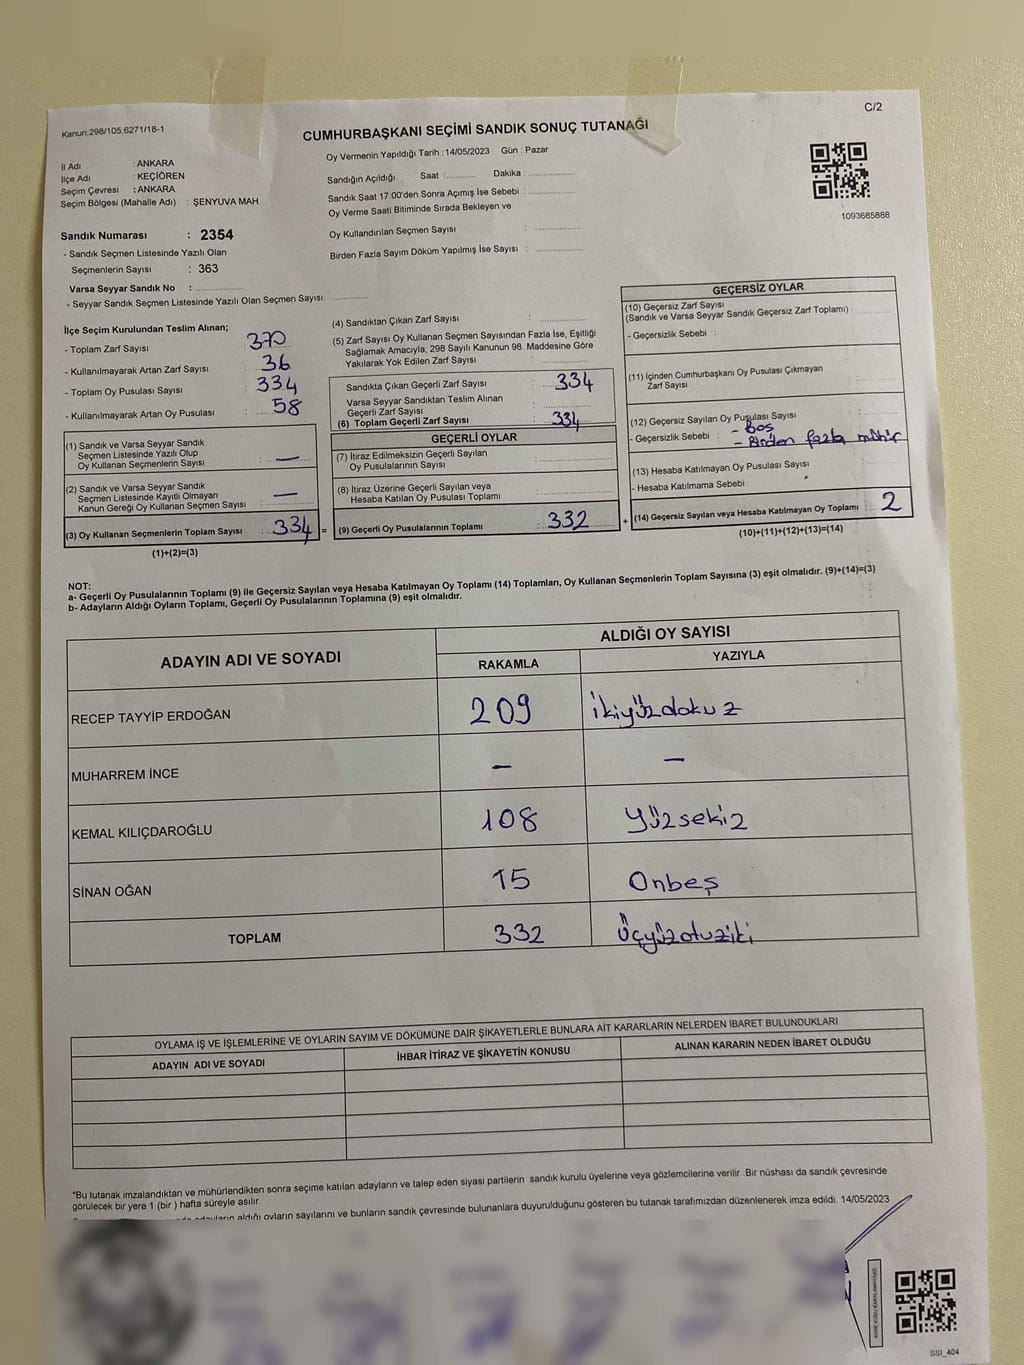 C/2
Kanun:298/105;6271/18-1
CUMHURBAŞKANI SEÇİMİ SANDIK SONUÇ TUTANAĞI
İl Adı : ANKARA
İlçe Adı : KEÇİÖREN
Seçim Çevresi : ANKARA
Seçim Bölgesi (Mahalle Adı) : ŞENYUVA MAH.
Oy Vermenin Yapıldığı Tarih : 14/05/2023 Gün : Pazar
Sandığın Açıldığı Saat : Dakika :
Sandık Saat 17:00'den Sonra Açımış İse Sebebi :
Oy Verme Saati Bitiminde Sırada Bekleyen ve
Oy Kullandırılan Seçmen Sayısı :
Birden Fazla Sayım Döküm Yapılmış İse Sayısı :
1093685888
Sandık Numarası : 2354
- Sandık Seçmen Listesinde Yazılı Olan
Seçmenlerin Sayısı : 363
Varsa Seyyar Sandık No :
- Seyyar Sandık Seçmen Listesinde Yazılı Olan Seçmen Sayısı:
İlçe Seçim Kurulundan Teslim Alınan;
- Toplam Zarf Sayısı : 370
- Kullanılmayarak Artan Zarf Sayısı : 36
- Toplam Oy Pusulası Sayısı : 334
- Kullanılmayarak Artan Oy Pusulası : 58
(1) Sandık ve Varsa Seyyar Sandık
Seçmen Listesinde Yazılı Olup
Oy Kullanan Seçmenlerin Sayısı : —
(2) Sandık ve Varsa Seyyar Sandık
Seçmen Listesinde Kayıtlı Olmayan
Kanun Gereği Oy Kullanan Seçmen Sayısı : —
(3) Oy Kullanan Seçmenlerin Toplam Sayısı : 334 =
(1)+(2)=(3)
(4) Sandıktan Çıkan Zarf Sayısı :
(5) Zarf Sayısı Oy Kullanan Seçmen Sayısından Fazla İse, Eşitliği
Sağlamak Amacıyla, 298 Sayılı Kanunun 98. Maddesine Göre
Yakılarak Yok Edilen Zarf Sayısı :
Sandıkta Çıkan Geçerli Zarf Sayısı : 334
Varsa Seyyar Sandıktan Teslim Alınan
Geçerli Zarf Sayısı :
(6) Toplam Geçerli Zarf Sayısı : 334
GEÇERLİ OYLAR
(7) İtiraz Edilmeksizin Geçerli Sayılan
Oy Pusulalarının Sayısı :
(8) İtiraz Üzerine Geçerli Sayılan veya
Hesaba Katılan Oy Pusulası Toplamı :
(9) Geçerli Oy Pusulalarının Toplamı : 332 +
GEÇERSİZ OYLAR
(10) Geçersiz Zarf Sayısı
(Sandık ve Varsa Seyyar Sandık Geçersiz Zarf Toplamı) :
- Geçersizlik Sebebi :
(11) İçinden Cumhurbaşkanı Oy Pusulası Çıkmayan
Zarf Sayısı :
(12) Geçersiz Sayılan Oy Pusulası Sayısı :
- Geçersizlik Sebebi : - Boş
- Birden fazla mühür
(13) Hesaba Katılmayan Oy Pusulası Sayısı :
- Hesaba Katılmama Sebebi :
(14) Geçersiz Sayılan veya Hesaba Katılmayan Oy Toplamı : 2
(10)+(11)+(12)+(13)=(14)
NOT:
a- Geçerli Oy Pusulalarının Toplamı (9) ile Geçersiz Sayılan veya Hesaba Katılmayan Oy Toplamı (14) Toplamları, Oy Kullanan Seçmenlerin Toplam Sayısına (3) eşit olmalıdır. (9)+(14)=(3)
b- Adayların Aldığı Oyların Toplamı, Geçerli Oy Pusulalarının Toplamına (9) eşit olmalıdır.
ADAYIN ADI VE SOYADI
ALDIĞI OY SAYISI
RAKAMLA YAZIYLA
RECEP TAYYİP ERDOĞAN 209 ikiyüzdokuz
MUHARREM İNCE — —
KEMAL KILIÇDAROĞLU 108 Yüzsekiz
SİNAN OĞAN 15 Onbeş
TOPLAM 332 Üçyüzotuziki
OYLAMA İŞ VE İŞLEMLERİNE VE OYLARIN SAYIM VE DÖKÜMÜNE DAİR ŞİKAYETLERLE BUNLARA AİT KARARLARIN NELERDEN İBARET BULUNDUKLARI
ADAYIN ADI VE SOYADI İHBAR İTİRAZ VE ŞİKAYETİN KONUSU ALINAN KARARIN NEDEN İBARET OLDUĞU
*Bu tutanak imzalandıktan ve mühürlendikten sonra seçime katılan adayların ve talep eden siyasi partilerin sandık kurulu üyelerine veya gözlemcilerine verilir. Bir nüshası da sandık çevresinde
görülecek bir yere 1 (bir ) hafta süreyle asılır.
adayların aldığı oyların sayılarını ve bunların sandık çevresinde bulunanlara duyurulduğunu gösteren bu tutanak tarafımızdan düzenlenerek imza edildi. 14/05/2023
SSI_404